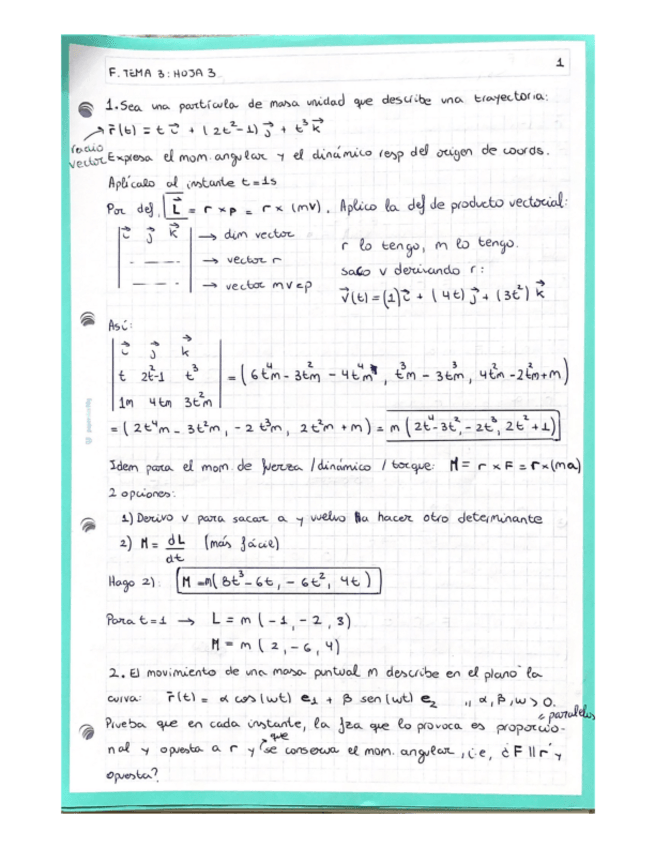 1
F. TEMA 3: HOJA 3
1. Sea una partícula de masa unidad que describe una trayectoria:
r̄(t) = t i⃗ + (2t²-1) j⃗ + t³ k⃗
radio vector
Expresa el mom. angular y el dinámico resp del origen de coords.
Aplícalo al instante t=1s
Por def, L⃗ = r x p = r x (mv). Aplico la def de producto vectorial:
i⃗ j⃗ k⃗ → dim vector
→ vector r
→ vector mv ep
r lo tengo, m lo tengo.
saco v derivando r:
v⃗(t) = (1) i⃗ + (4t) j⃗ + (3t²) k⃗
Así:
i⃗ j⃗ k⃗
t 2t²-1 t³
1m 4tm 3t²m
= (6t⁴m - 3t²m - 4t⁴m, t³m - 3t³m, 4t²m - 2t²m + m)
= (2t⁴m - 3t²m, -2t³m, 2t²m + m) = m (2t⁴-3t², -2t³, 2t²+1)
Idem para el mom. de fuerza / dinámico / torque: M = r x F = r x (ma)
2 opciones:
1) Derivo v para sacar a y vuelvo a hacer otro determinante
2) M = dL/dt (más fácil)
Hago 2): M = m(8t³-6t, -6t², 4t)
Para t=1 → L = m (-1, -2, 3)
M = m (2, -6, 4)
2. El movimiento de una masa puntual m describe en el plano la
curva: r̄(t) = α cos(wt) e₁ + β sen(wt) e₂ ,, α, β, w > 0.
Prueba que en cada instante, la fza que lo provoca es proporcio-
paralelos
nal y opuesta a r y que se conserva el mom. angular, i.e, ¿F || r y
opuesta?